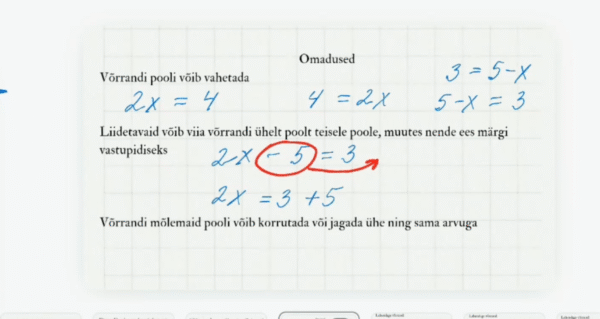 Omadused
3 = 5-x
Võrrandi pooli võib vahetada
2x = 4 4 = 2x 5-x = 3
Liidetavaid võib viia võrrandi ühelt poolt teisele poole, muutes nende ees märgi
vastupidiseks
2x - 5 = 3
2x = 3 + 5
Võrrandi mõlemaid pooli võib korrutada või jagada ühe ning sama arvuga